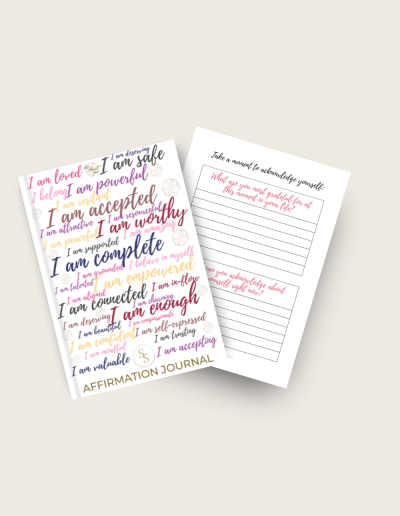 I am deserving
I am loved
I am safe
I belong
I am powerful
I am resilient
I am accepted
I am resourceful
I am attractive
I am worthy
I am peaceful
I am amazing
I am supported
I am complete
I believe in myself
I am grounded
I am talented
I am empowered
I am aligned
I am in-flow
I am connected
I am charming
I am deserving
I am enough
I am beautiful
I am compassionate
I am confident
I am self-expressed
I am mindful
I am trusting
I am valuable
I am accepting
AFFIRMATION JOURNAL
Take a moment to acknowledge yourself:
What are you most grateful for at
this moment in your life?
you acknowledge about
yourself right now?